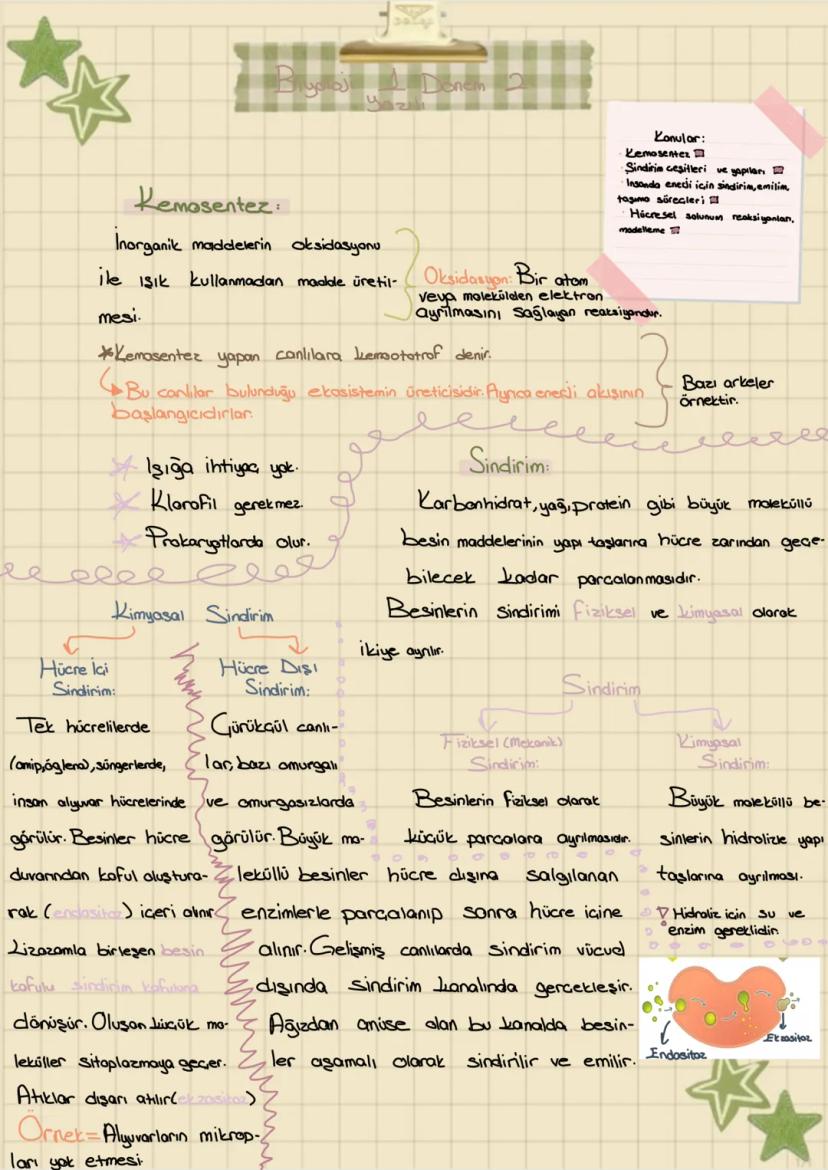 Biyoloji 1 Dönem 2
yazılı
Konular:
Kemosentez
Sindirim çeşitleri ve yapıları
İnsanda enerji için sindirim, emilim,
taşıma süreçleri
Hücresel solunum reaksiyonları,
modelleme
Kemosentez:
İnorganik maddelerin oksidasyonu
ile ışık kullanmadan madde üretil-
mesi.
Oksidasyon: Bir atom
veya molekülden elektron
ayrılmasını sağlayan reaksiyondur.
*Kemosentez yapan canlılara kemoototrof denir.
Bu canlılar bulunduğu ekosistemin üreticisidir. Ayrıca enerji akışının
başlangıcıdırlar.
Bazı arkeler
örnektir.
Işığa ihtiyaç yok.
Klorofil gerekmez.
Prokaryotlarda olur.
Sindirim:
Karbonhidrat, yağ, protein gibi büyük moleküllü
besin maddelerinin yapı taşlarına hücre zarından geçe-
bilecek kadar parçalanmasıdır.
Besinlerin sindirimi fiziksel ve kimyasal olarak
ikiye ayrılır.
Sindirim
Fiziksel (Mekanik)
Sindirim:
Besinlerin fiziksel olarak
küçük parçalara ayrılmasıdır.
Kimyasal
Sindirim:
Büyük moleküllü be-
sinlerin hidrolizle yapı
taşlarına ayrılması.
! Hidroliz için su ve
enzim gereklidir.
Kimyasal Sindirim
Hücre İçi
Sindirim:
Tek hücrelilerde
(amip, öglena), süngerlerde,
insan alyuvar hücrelerinde
görülür. Besinler hücre
duvarından koful oluştura-
rak (endositoz) içeri alınır
Lizozomla birleşen besin
kofulu sindirim kofuluna
dönüşür. Oluşan küçük mo-
leküller sitoplazmaya geçer.
Atıklar dışarı atılır(ekzositoz)
Örnek= Alyuvarların mikrop-
ları yok etmesi.
Hücre Dışı
Sindirim:
Çürükçül canlı-
lar, bazı omurgalı
ve omurgasızlarda
görülür. Büyük mo-
leküllü besinler hücre dışına salgılanan
enzimlerle parçalanıp sonra hücre içine
alınır. Gelişmiş canlılarda sindirim vücud
dışında sindirim kanalında gerçekleşir.
Ağızdan anüse olan bu kanalda besin-
ler aşamalı olarak sindirilir ve emilir.
Endositoz
Ekzositoz